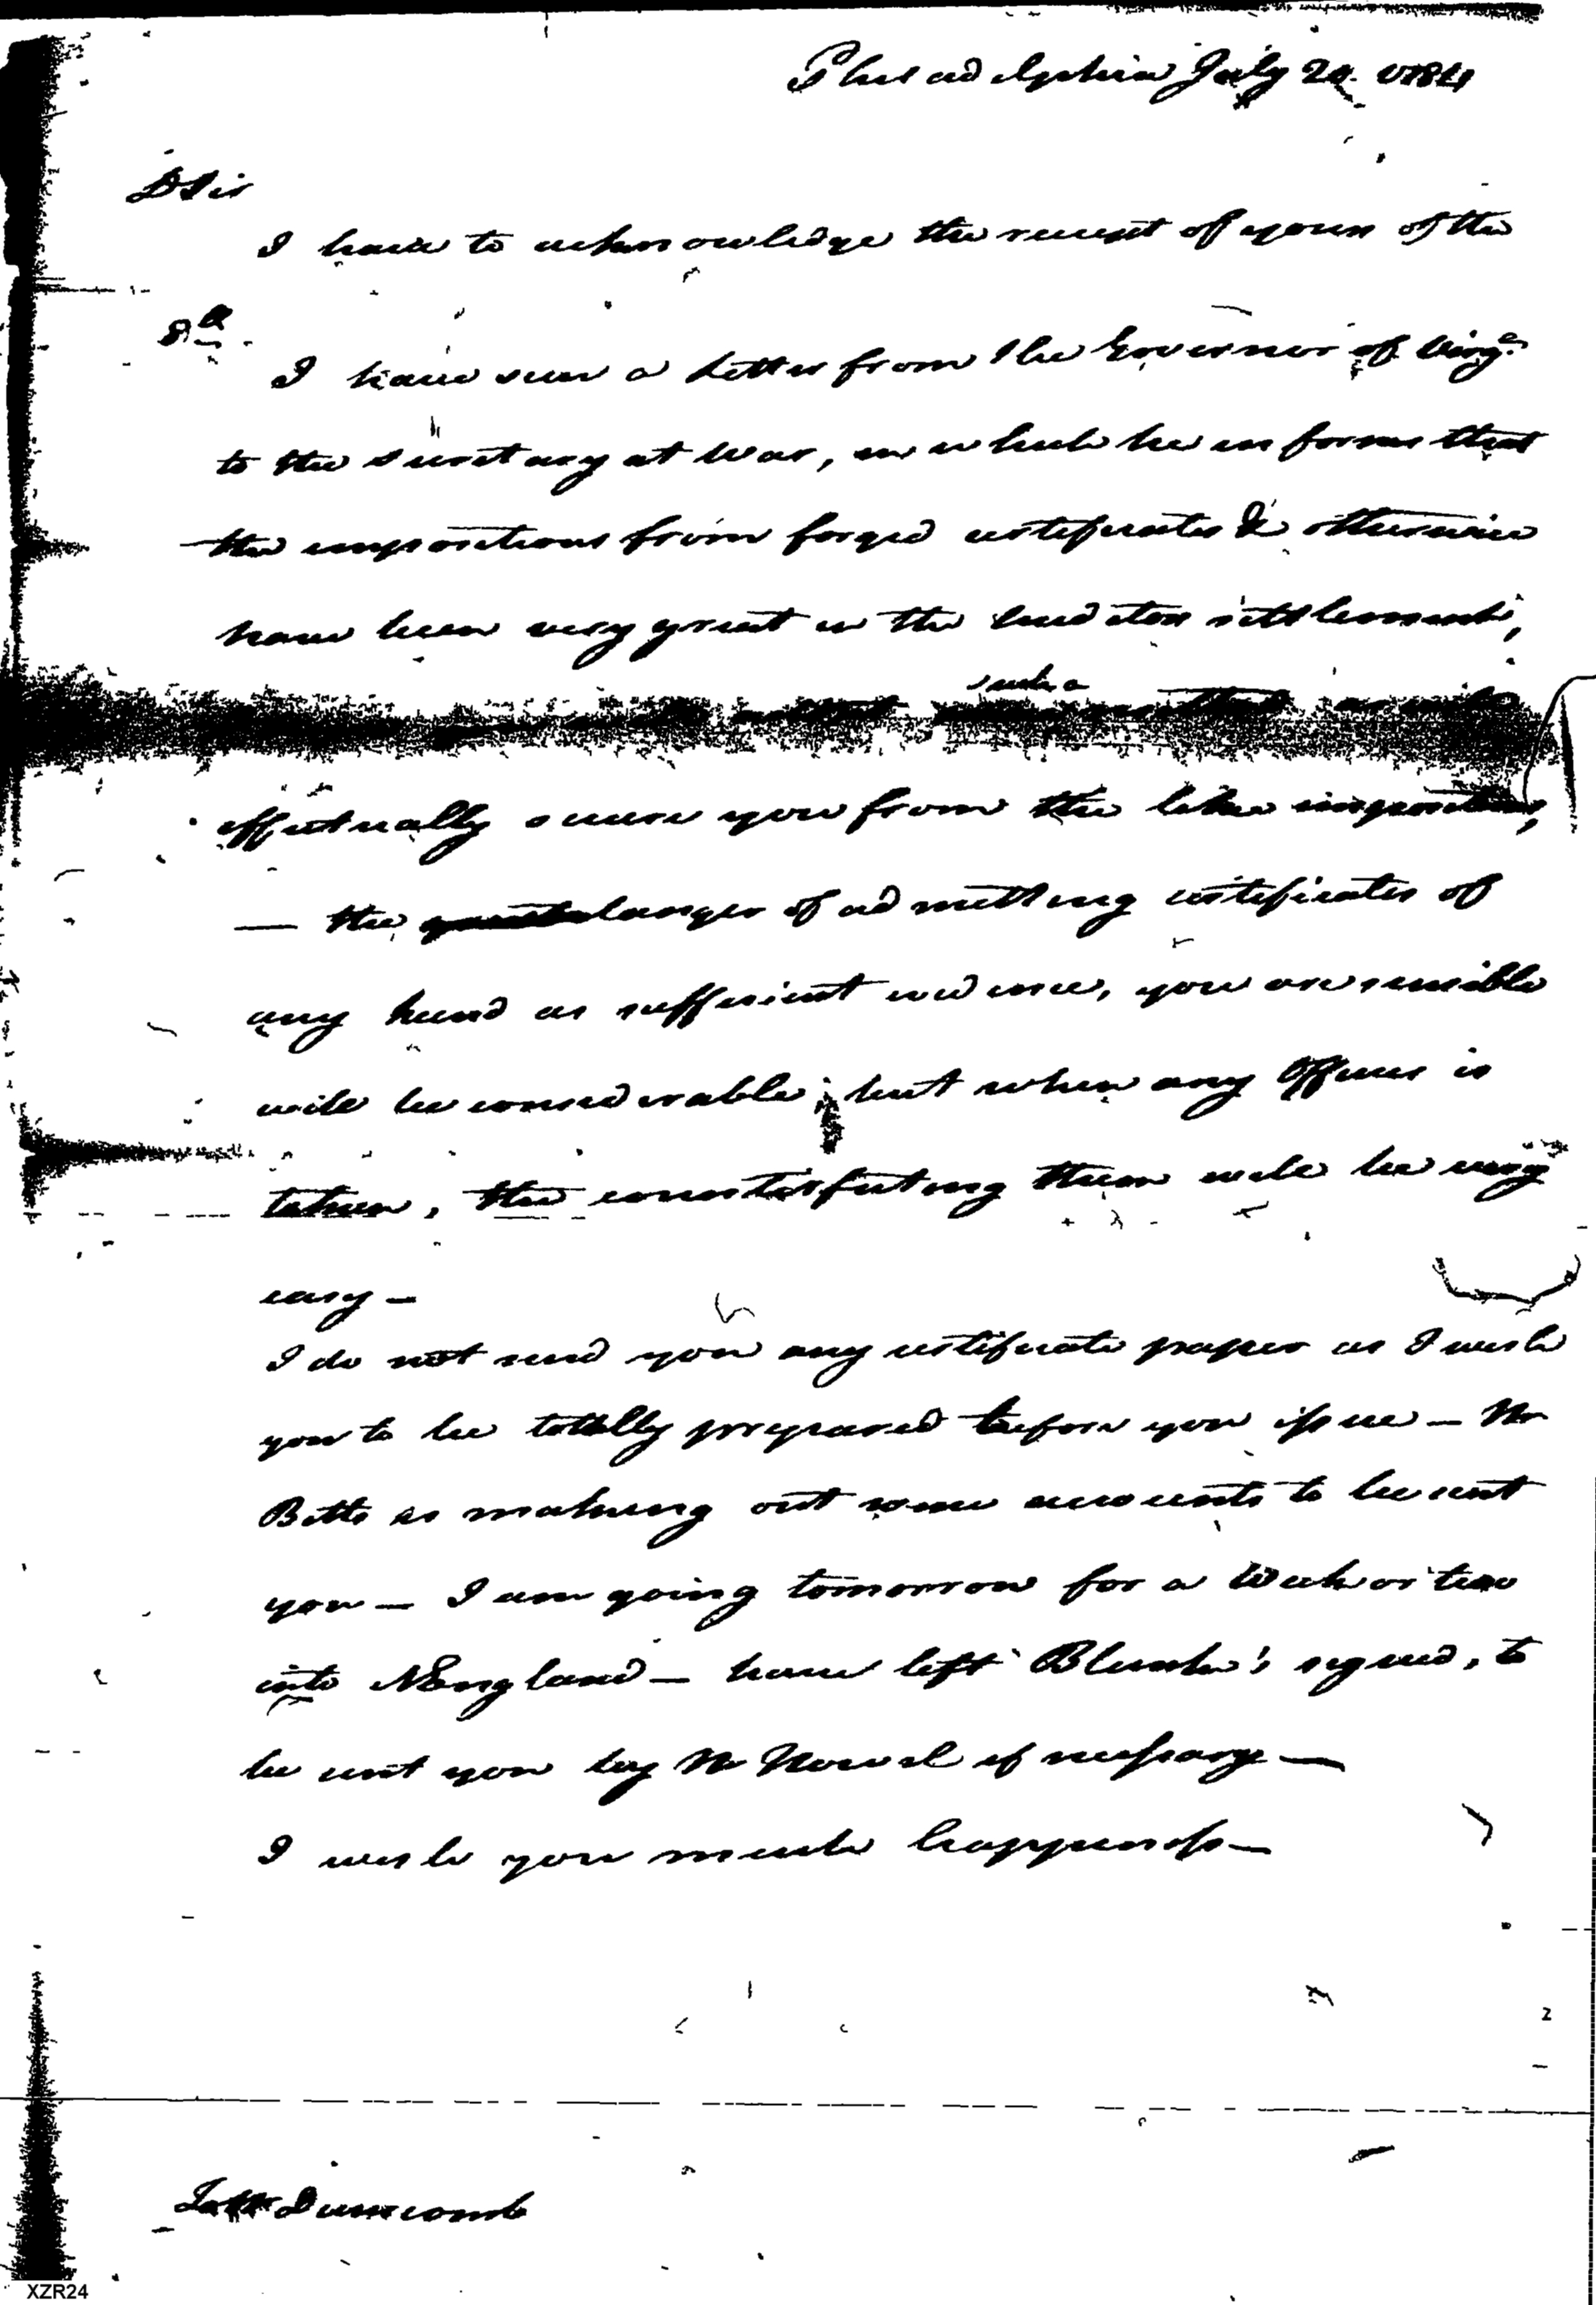 Philadelphia July 20. 1784
D Sir
I have to acknowledge the receipt of yours of the
8th.
I have seen a letter from the Governor of Virga.
to the Secretary at War, in which he informs that
the impositions from forged certificates & otherwise
have been very great in the settlements,
such a
effectually secure you from the like impositions,
— the danger of admitting certificates of
any kind as sufficient evidence, you are sensible
will be considerable; but when any Officers is
taken, the counterfeiting them will be very
easy —
I do not send you any certificate paper as I wish
you to be totally prepared before you issue — Mr
Betts is making out some accounts to be sent
you — I am going tomorrow for a Week or two
into NEngland — have left Blanks signed, to
be sent you by Mr if necessary —
I wish you much happiness —
2
Duncomb
XZR24